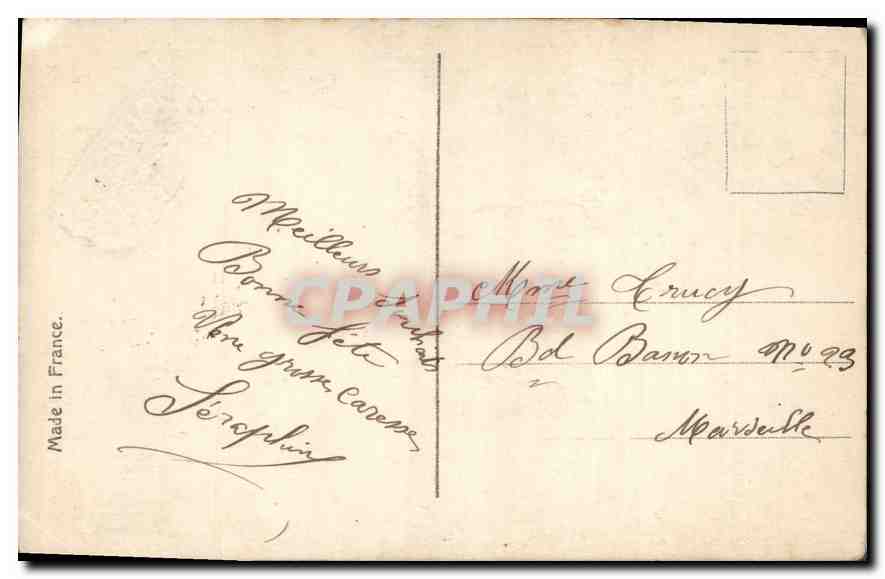 Made in France.
Meilleurs souhaits
Bonne fête
Une grosse caresse
Séraphin
Mme Crucy
Bd Banon no 93
Marseille
CPAPHIL